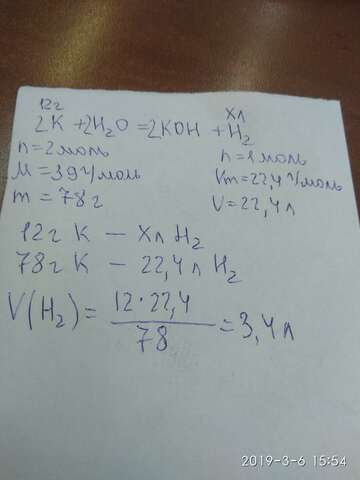 12г Xл
2K + 2H₂O = 2KOH + H₂
n = 2 моль n = 1 моль
M = 39 г/моль Vm = 22,4 л/моль
m = 78 г V = 22,4 л
12 г K — Xл H₂
78 г K — 22,4 л H₂
V(H₂) = 12·22,4 / 78 = 3,4 л
2019-3-6 15:54